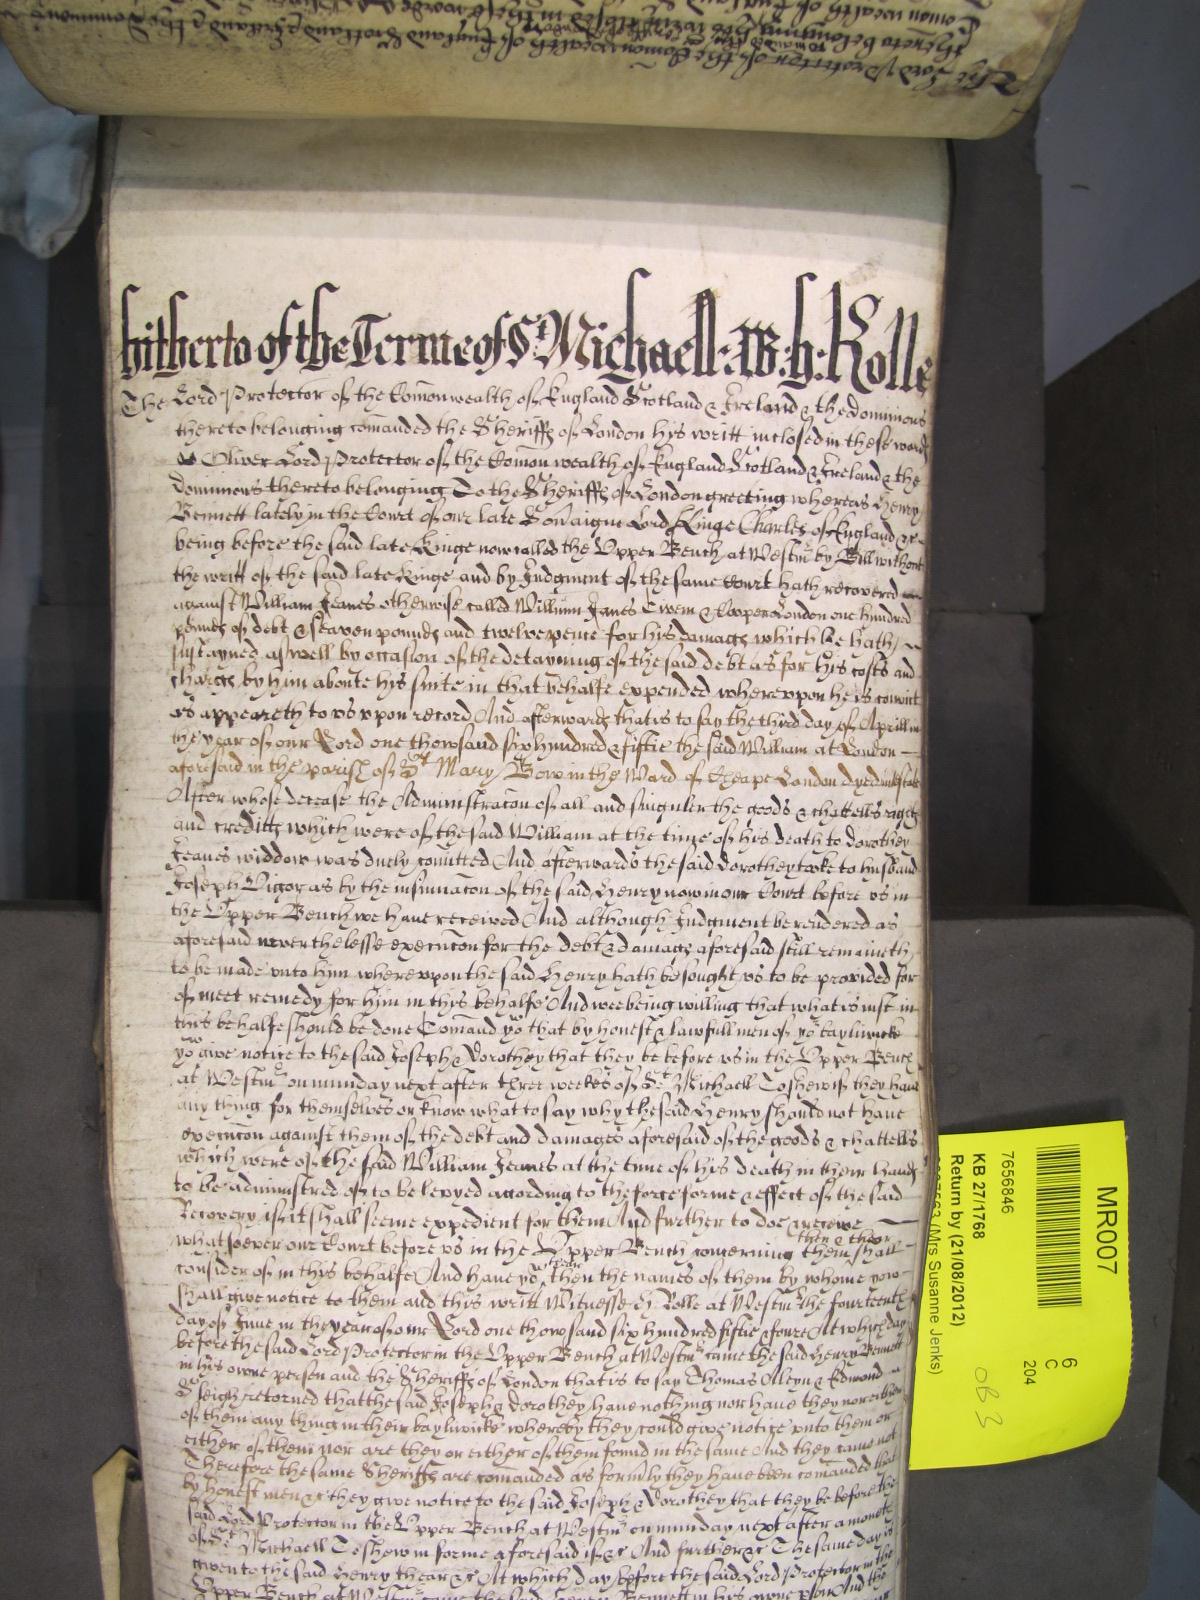 The Lord Protector of the Comon wealth of England Scotland & Ireland & the dominions
thereto belonging comanded in these words
hitherto of the Terme of St Michaell: W: h: Rolle
The Lord Protector of the Comon wealth of England Scotland & Ireland & the Dominions
thereto belonging comanded the Sheriffs of London his writt inclosed in these words
ss Oliver Lord Protector of the Comon wealth of England Scotland & Ireland & the
dominions thereto belonging To the Sheriffs of London greeting whereas Henry
Bennett lately in the Court of our late Soveraigne Lord Kinge Charles of England &c
being before the said late Kinge now called the Upper Bench at Westmr by Bill without
the writt of the said late Kinge and by Judgment of the same Court hath recovered
against William Jeanes otherwise called William Janes Citizen & Cooper London one hundred
pounds of debt & seaven pounds and twelve pence for his damags which he hath
sustayned aswell by occasion of the detayning of the said debt as for his costs and
chargs by him aboute his suite in that behalfe expended whereupon he is convict
as appeareth to us upon record And afterwards that is to say the third day of Aprill in
the year of our Lord one thowsand six hundred & fiftie the said William at London
aforesaid in the parish of St Mary Bow in the Ward of Cheape London dyed intestate
After whose decease the Administracon of all and singuler the goods & chattells rights
and creditts which were of the said William at the time of his death to dorothey
Jeanes widdow was duely comitted And afterwards the said dorothey tooke to husband
Joseph Vigor as by the insinuacon of the said Henry now in our Court before us in
the Upper Bench we have received And although Judgment be rendered as
aforesaid neverthelesse execucon for the debt & damags aforesaid still remaineth
to be made unto him whereupon the said Henry hath besought us to be provided for
of meet remedy for him in this behalfe And wee being willing that what is iust in
this behalfe should be done Comand you that by honest & lawfull men of yor bayliwicke
you give notice to the said Joseph & Dorothey that they be before us in the Upper Bench
at Westmr on munday next after three weekes of St Michaell To shew if they have
any thing for themselves or know what to say why the said Henry should not have
execucon against them of the debt and damages aforesaid of the goods & chattells
which were of the said William Jeanes at the time of his death in their hands
to be administred of to be levyed acording to the force forme & effect of the said
Recovery if it shall seeme expedient for them And further to doe & receive
whatsoever our Court before us in the Upper Bench concerning them then & there shall
consider of in this behalfe And have you there then the names of them by whome you
shall give notice to them and this writt Witnesse H Rolle at Westmr the fourteenth
day of June in the year of our Lord one thowsand six hundred fiftie & foure At which day
before the said Lord Protector in the Upper Bench at Westmr came the said Henry Bennett
in his owne person and the Sheriffs of London that is to say Thomas Aleyn & Edmond
Sleigh retorned that the said Joseph & Dorothey have nothing nor have they nor either
of them any thing in their bayliwicke whereby they could give notice unto them or
either of them nor are they or either of them found in the same And they came not
Therefore the same Sheriffs are comanded as formerly they have been comanded that
by honest men &c they give notice to the said Joseph & Dorothey that they be before the
said Lord Protector in the Upper Bench at Westmr on munday next after a moneth
of St Michaell To shew in forme aforesaid if &c And further &c The same day is
given to the said Henry there &c At which day before the said Lord Protector in the
Upper Bench at Westmr came the said Henry Bennett in his owne person And the
MR007
7656846
KB 27/1768
Return by (21/08/2012)
(Mrs Susanne Jenks)
6
C
204
OB 3